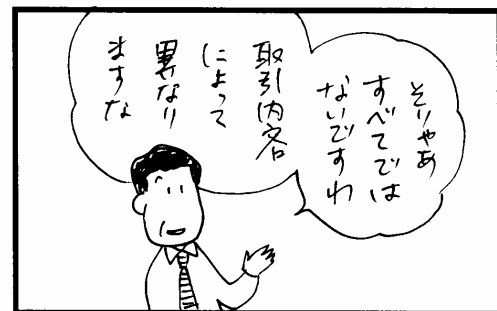 そりゃあ
すべてでは
ないですわ
取引内容
によって
異なり
ますな